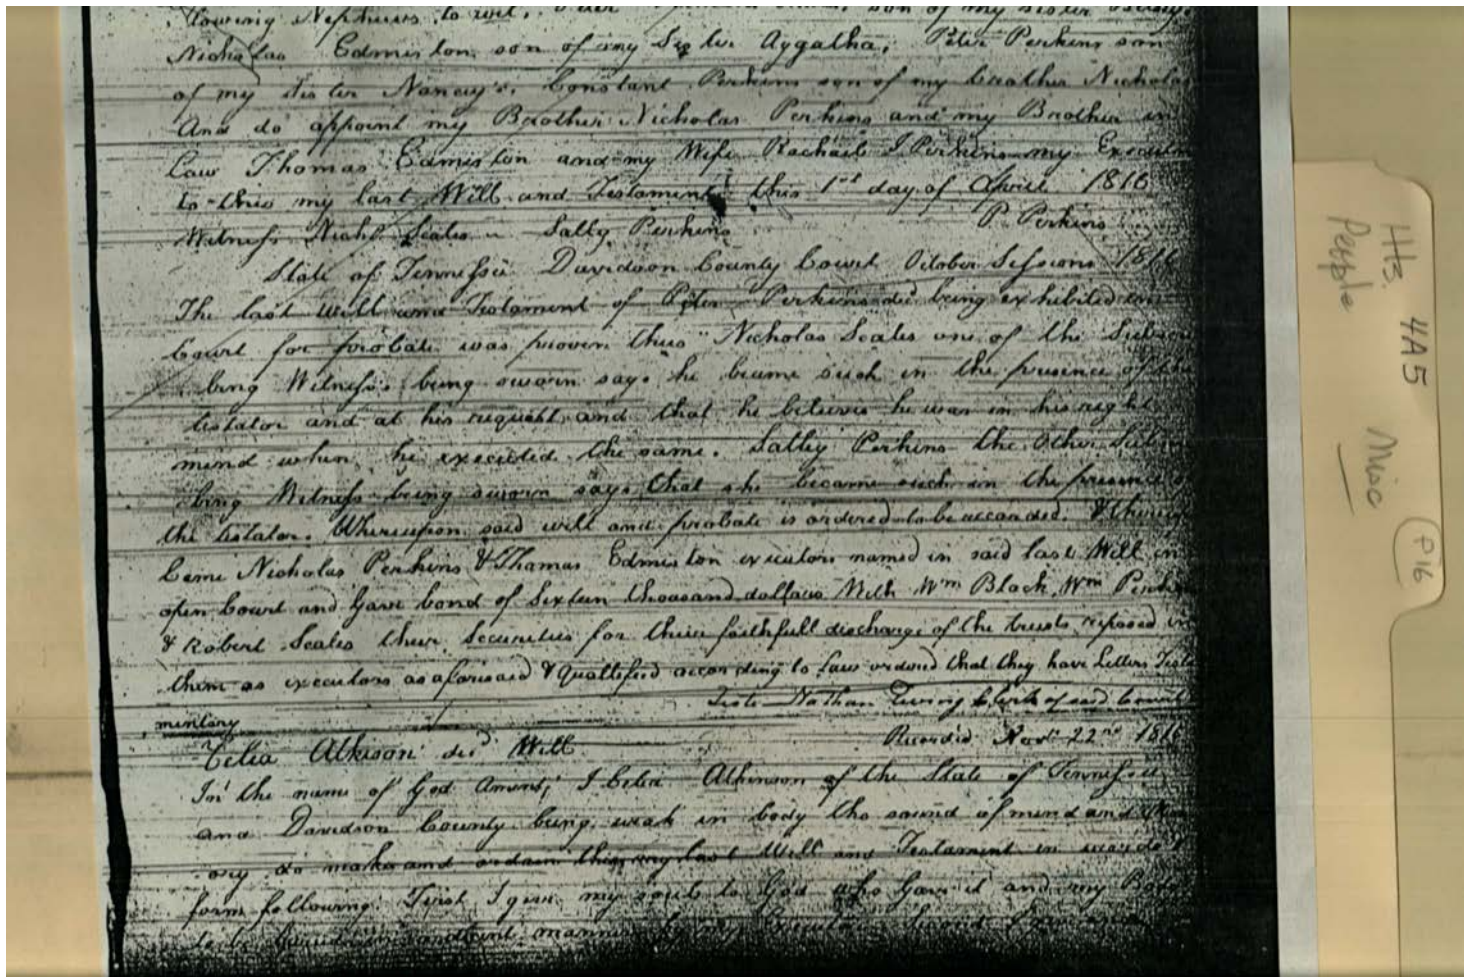 Nephews, to wit, son of my sister
Nicholas Edmiston son of my Sister Aygatha, Peter Perkins son
of my sister Nancy's, Constant Perkins son of my brother Nicholas
And do appoint my Brother Nicholas Perkins and my Brother in
Law Thomas Edmiston and my Wife Rachael Perkins my
to this my last Will and Testament this 1st day of April 1816
Witness Nichl Scales Sally Perkins P. Perkins
State of Tennessee Davidson County Court October Sessions 1816
The last will and Testament of Peter Perkins decd being exhibited in
Court for probate was proven thus Nicholas Scales one of the Subscri
bing Witness being sworn says he became such in the presence of the
testator and at his request and that he believes he was in his right
mind when he executed the same. Salley Perkins the other Subscri
bing Witness being sworn says that she became such in the presence of
the testator. Whereupon said will and probate is ordered to be recorded.
Came Nicholas Perkins & Thomas Edmiston executors named in said last Will in
open Court and gave bond of Sixteen thousand dollars With Wm Black, Wm Perkins
& Robert Scales their Securities for their faithfull discharge of the trusts reposed in
them as executors as aforesaid & Quallified according to Law ordered that they have Letters Testa
Teste Nathan Ewing Clerk of said Court
mentary
Celia Atkison decd Will Recorded Novr 22nd 1816
In the name of God Amen, I Celia Atkinson of the State of Tennessee
and Davidson County being weak in body tho sound of mind and
ory do make and ordain this my last Will and Testament in
form following. First I give my soul to God who gave it and my Body
to be manner by my
HH3 4A5 Misc P16
People